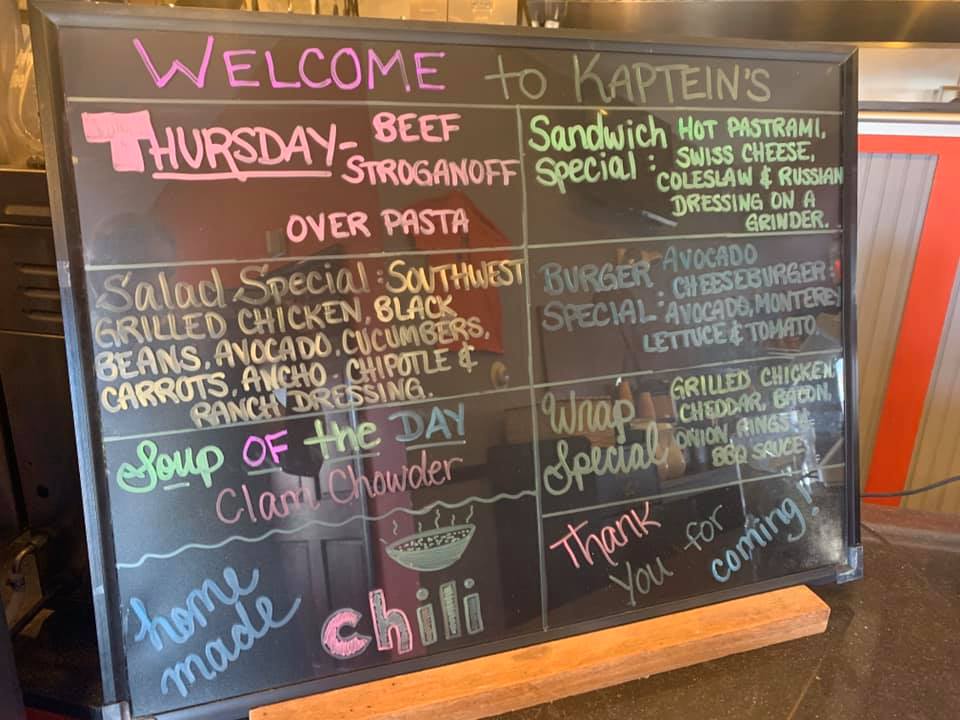 WELCOME to KAPTEIN'S
THURSDAY- BEEF
STROGANOFF
OVER PASTA
Sandwich HOT PASTRAMI,
Special: SWISS CHEESE,
COLESLAW & RUSSIAN
DRESSING ON A
GRINDER.
Salad Special: SOUTHWEST
GRILLED CHICKEN, BLACK
BEANS, AVOCADO, CUCUMBERS,
CARROTS, ANCHO-CHIPOTLE &
RANCH DRESSING.
BURGER AVOCADO
SPECIAL: CHEESEBURGER:
AVOCADO, MONTEREY
LETTUCE & TOMATO.
Soup OF the DAY
Clam Chowder
Wrap GRILLED CHICKEN,
Special CHEDDAR, BACON,
ONION RINGS &
BBQ SAUCE
home
made
chili
Thank
You for
coming!